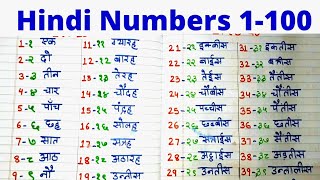 Hindi Numbers 1-100
1-१ एक 11-११ ग्यारह
2-२ दो 12-१२ बारह
3-३ तीन 13-१३ तेरह
4-४ चार 14-१४ चौदह
5-५ पाँच 15-१५ पंद्रह
6-६ छह 16-१६ सोलह
7-७ सात 17-१७ सत्रह
8-८ आठ 18-१८ अठारह
9-९ नौ 19-१९ उन्नीस
21-२१ इक्कीस 31-३१ इकतीस
22-२२ बाईस 32-३२ बत्तीस
23-२३ तेईस 33-३३ तैंतीस
24-२४ चौबीस 34-३४ चौंतीस
25-२५ पच्चीस 35-३५ पैंतीस
26-२६ छब्बीस 36-३६ छत्तीस
27-२७ सत्ताईस 37-३७ सैंतीस
28-२८ अट्ठाईस 38-३८ अड़तीस
29-२९ उनतीस 39-३९ उनतालीस